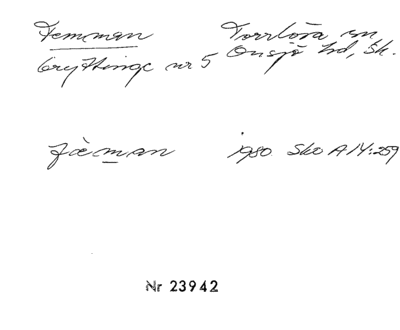 Femman Torrlösa sn
Gryttinge nr 5 Onsjö hd, Sk.
fæman 1980 SkO A 14:259
Nr 23942